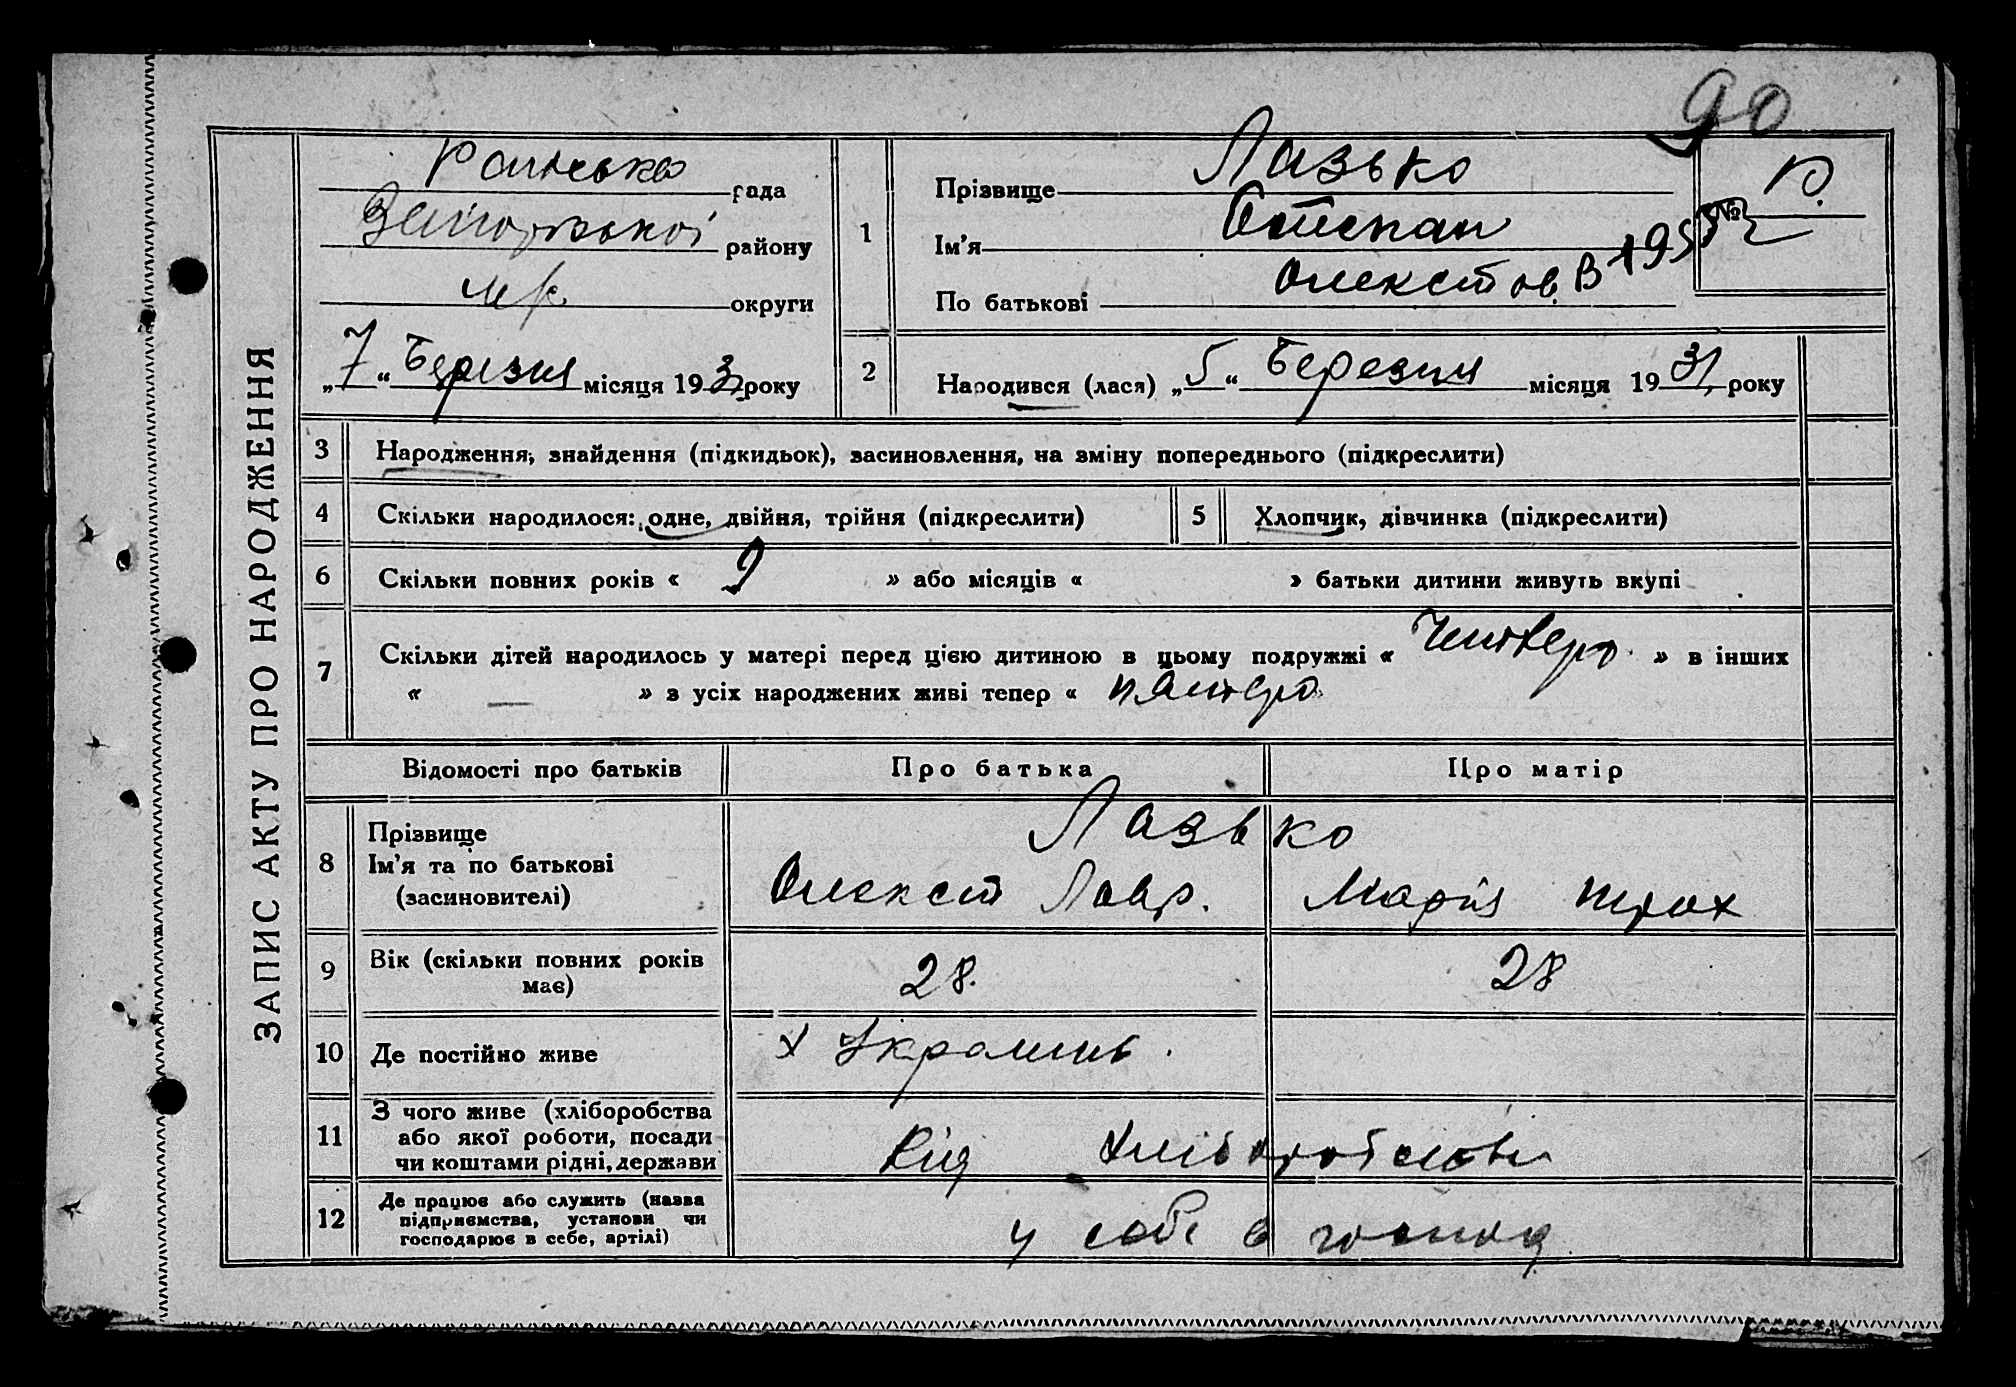 90
ЗАПИС АКТУ ПРО НАРОДЖЕННЯ
рада
району
округи
„7“ Березня місяця 193 року
1
Прізвище Лазько
Ім'я Стспан
По батькові Олексійов. В
№
2
Народився (лася) „5“ Березня місяця 1931 року
3 Народження, знайдення (підкидьок), засиновлення, на зміну попереднього (підкреслити)
4 Скільки народилося: одне, двійня, трійня (підкреслити)
5 Хлопчик, дівчинка (підкреслити)
6 Скільки повних років « 9 » або місяців « » батьки дитини живуть вкупі
7 Скільки дітей народилось у матері перед цією дитиною в цьому подружжі « Четверо » в інших
« — » з усіх народжених живі тепер « пятеро
Відомості про батьків
Про батька
Про матір
8 Прізвище
Ім'я та по батькові
(засиновителі)
Лазько
Олексій Лавр.
Марія
9 Вік (скільки повних років
має)
28.
28
10 Де постійно живе
х
11 З чого живе (хліборобства
або якої роботи, посади
чи коштами рідні, держави
Від хліборобства
12 Де працює або служить (назва
підприємства, установи чи
господарює в себе, артілі)
у себе в господ.